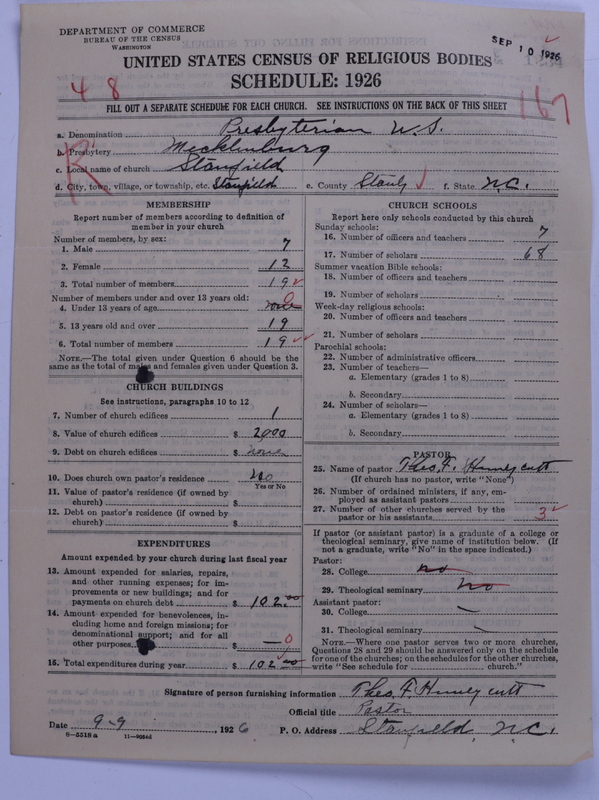 DEPARTMENT OF COMMERCE
BUREAU OF THE CENSUS
WASHINGTON
SEP 10 1926
UNITED STATES CENSUS OF RELIGIOUS BODIES
SCHEDULE: 1926
4 8
167
FILL OUT A SEPARATE SCHEDULE FOR EACH CHURCH. SEE INSTRUCTIONS ON THE BACK OF THIS SHEET
a. Denomination Presbyterian U.S.
b. Presbytery Mecklenburg
c. Local name of church Stanfield
d. City, town, village, or township, etc. Stanfield e. County Stanly f. State N.C.
R
MEMBERSHIP
Report number of members according to definition of
member in your church
Number of members, by sex:
1. Male 7
2. Female 12
3. Total number of members 19
Number of members under and over 13 years old:
4. Under 13 years of age none 0
5. 13 years old and over 19
6. Total number of members 19
NOTE.—The total given under Question 6 should be the
same as the total of males and females given under Question 3.
CHURCH BUILDINGS
See instructions, paragraphs 10 to 12
7. Number of church edifices 1
8. Value of church edifices $ 2000
9. Debt on church edifices $ none
10. Does church own pastor's residence no
Yes or No
11. Value of pastor's residence (if owned by
church) $
12. Debt on pastor's residence (if owned by
church) $
EXPENDITURES
Amount expended by your church during last fiscal year
13. Amount expended for salaries, repairs,
and other running expenses; for im-
provements or new buildings; and for
payments on church debt $ 102.00
14. Amount expended for benevolences, in-
cluding home and foreign missions; for
denominational support; and for all
other purposes $ — 0
15. Total expenditures during year $ 102.00
CHURCH SCHOOLS
Report here only schools conducted by this church
Sunday schools:
16. Number of officers and teachers 7
17. Number of scholars 68
Summer vacation Bible schools:
18. Number of officers and teachers
19. Number of scholars
Week-day religious schools:
20. Number of officers and teachers
21. Number of scholars
Parochial schools:
22. Number of administrative officers
23. Number of teachers—
a. Elementary (grades 1 to 8)
b. Secondary
24. Number of scholars—
a. Elementary (grades 1 to 8)
b. Secondary
PASTOR
25. Name of pastor Theo. F. Huneycutt
(If church has no pastor, write "None")
26. Number of ordained ministers, if any, em-
ployed as assistant pastors
27. Number of other churches served by the
pastor or his assistants 3
If pastor (or assistant pastor) is a graduate of a college or
theological seminary, give name of institution below. (If
not a graduate, write "No" in the space indicated.)
Pastor:
28. College no
29. Theological seminary No
Assistant pastor:
30. College —
31. Theological seminary —
NOTE.—Where one pastor serves two or more churches,
Questions 28 and 29 should be answered only on the schedule
for one of the churches; on the schedules for the other churches,
write "See schedule for church."
Signature of person furnishing information Theo. F. Huneycutt
Official title Pastor
Date 9-9, 1926 P. O. Address Stanfield, N.C.